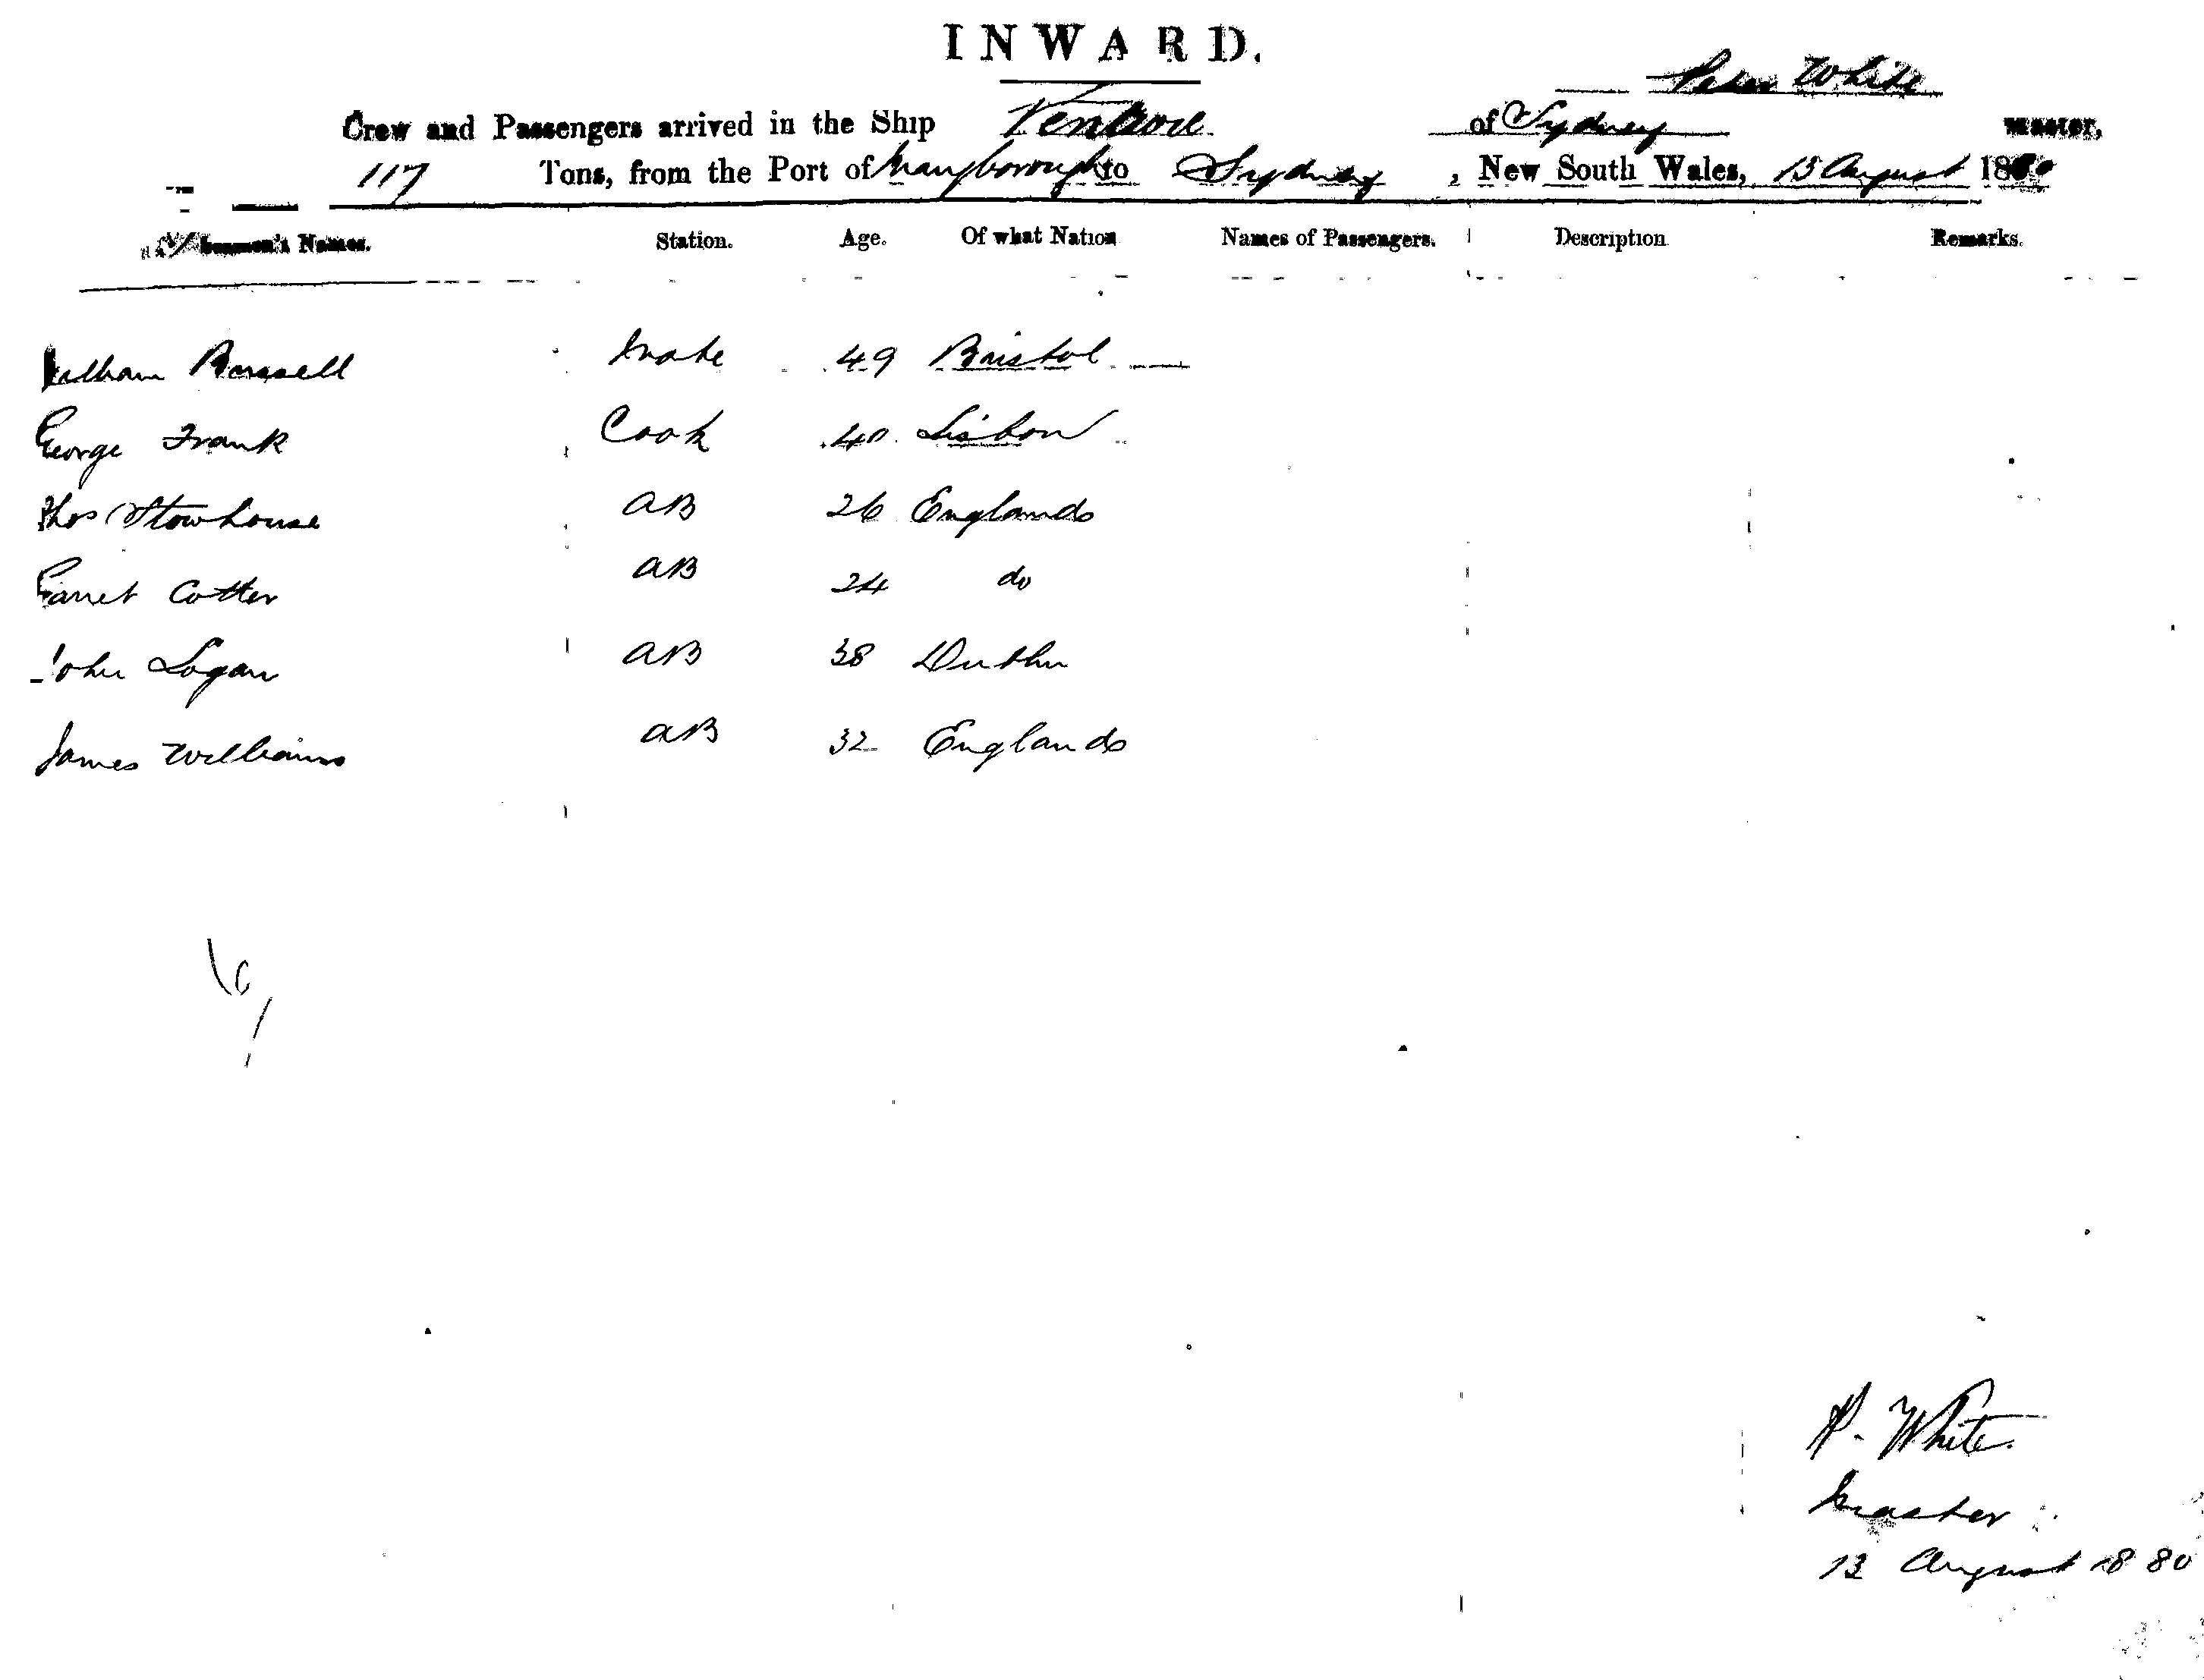 INWARD.
Peter White
Crew and Passengers arrived in the Ship of Sydney Master,
117 Tons, from the Port of Maryborough to Sydney, New South Wales, 13 August 1880
Seamen's Names. Station. Age. Of what Nation Names of Passengers. Description Remarks.
William Russell Mate 49 Bristol
George Frank Cook 40 Lisbon
Thos Stowhouse AB 26 England
Garret Cotter AB 24 do
John Logan AB 38 Dublin
James Williams AB 32 England
P. White
Master
13 August 1880